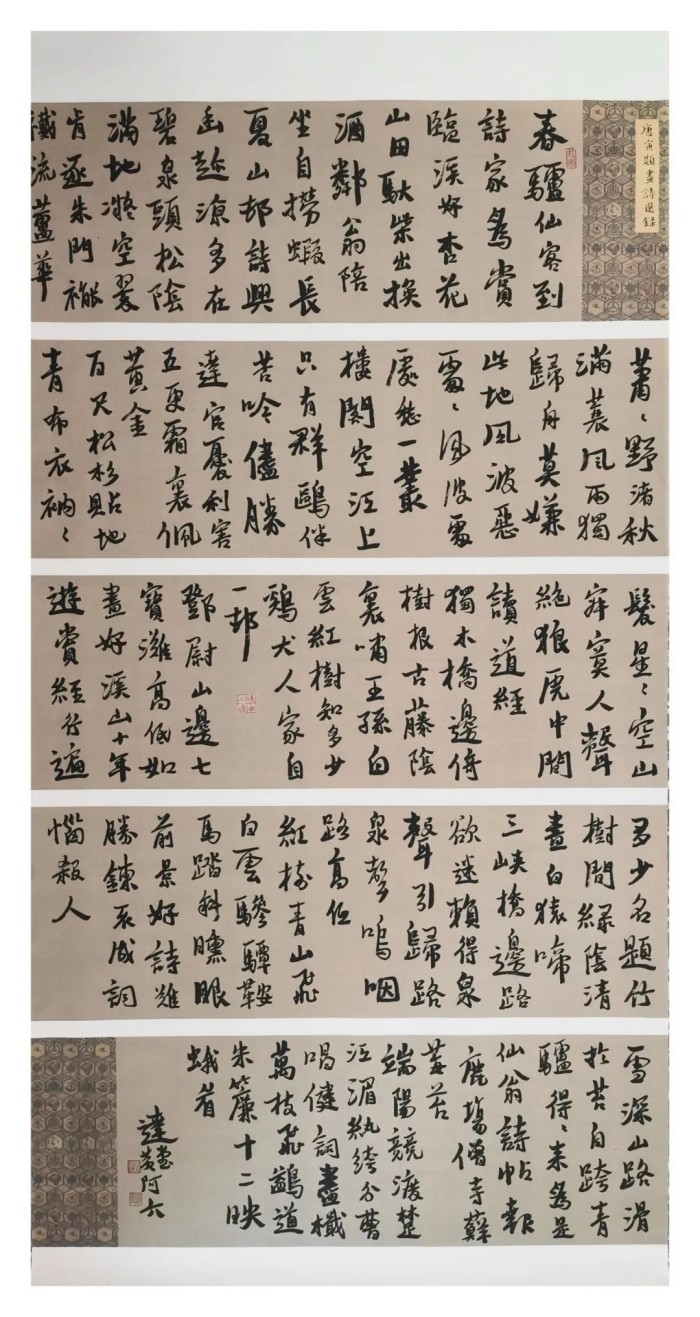 唐寅題畫詩選錄
春驢仙客到
詩家為賞
臨溪好杏花
山田馱柴出換
酒鄰翁陪
坐自撈蝦長
夏山邨詩興
幽趁涼多在
碧泉頭松陰
滿地凝空翠
肯逐朱門褦
襶流蘆華
蕭〻野渚秋
滿蓑風雨獨
歸舟莫嫌
此地風波惡
處〻風波處
處愁一叢
樓閣空江上
只有群鷗伴
苦吟儘勝
達官憂利害
五更霜裏佩
黃金
百尺松杉貼地
青布衣衲〻
髮星〻空山
寂寞人聲
絕狼虎中間
讀道經
獨木橋邊倚
樹根古藤陰
裏嘯王孫白
雲紅樹知多少
鷄犬人家自
一邨
鄧尉山邊七
寶灘高低如
畫好溪山十年
遊賞經行遍
多少名題竹
樹間綠陰清
晝白猿啼
三峽橋邊路
欲迷賴得泉
聲引歸路
泉聲嗚咽
路高低
紅樹青山飛
白雲驂驔鞍
馬踏斜曛眼
前景好詩難
勝鍊不成詞
惱殺人
雪深山路滑
於苔自跨青
驢得〻來為是
仙翁詩帖報
鹿場僧寺蘚
莓苔
端陽競渡楚
江湄紈綺分曹
唱健詞畫檝
萬枝飛鷁道
朱簾十二映
蛾眉
達堂黃阿六